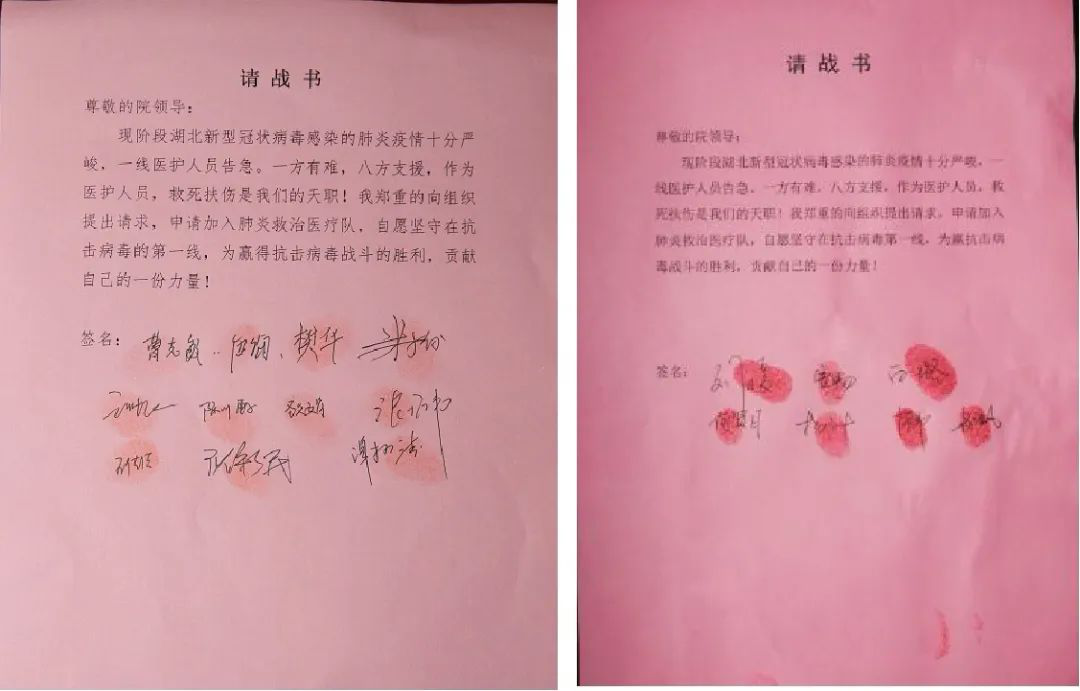 请战书
尊敬的院领导：
现阶段湖北新型冠状病毒感染的肺炎疫情十分严
峻，一线医护人员告急。一方有难，八方支援，作为
医护人员，救死扶伤是我们的天职！我郑重的向组织
提出请求，申请加入肺炎救治医疗队，自愿坚守在抗
击病毒的第一线，为赢得抗击病毒战斗的胜利，贡献
自己的一份力量！
签名：
请战书
尊敬的院领导：
现阶段湖北新型冠状病毒感染的肺炎疫情十分严峻，一
线医护人员告急。一方有难，八方支援，作为医护人员，救
死扶伤是我们的天职！我郑重的向组织提出请求，申请加入
肺炎救治医疗队，自愿坚守在抗击病毒第一线，为赢抗击病
毒战斗的胜利，贡献自己的一份力量！
签名：